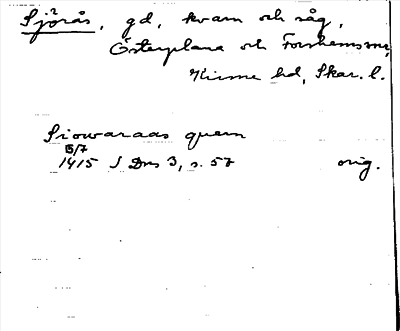 Sjörås, gd, kvarn och såg,
Österplana och Forshems snr,
Kinne hd, Skar. l.
Siowaraas quern
5/7
1415 S Dns 3, s. 57 orig.